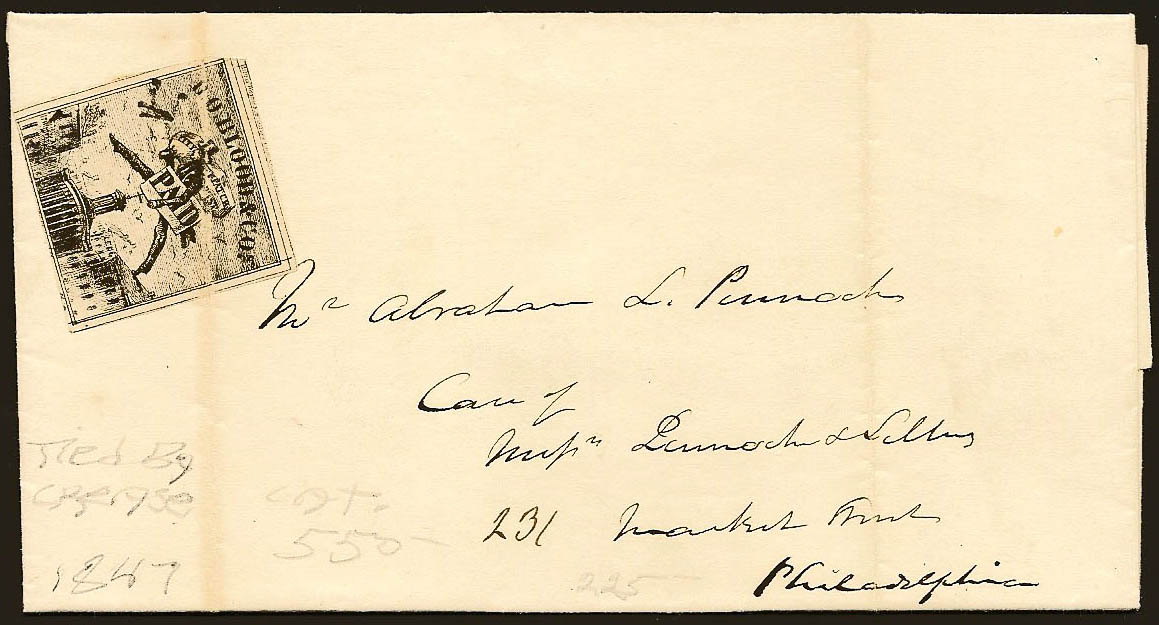 D.O. BLOOD & CO.
PAID
Mr Abraham L. Pennock
Care of
Messrs Pennock & Sellers
231 Market Street
Philadelphia
Tied By
crease
1847
cat.
550-
225-